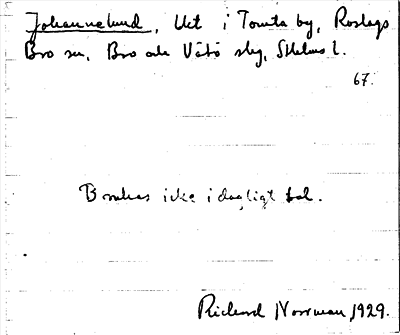 Johanneslund, Uet i Tomta by, Roslags
Bro sn, Bro och Vätö skg, Sthlms l.
67.
Brukas icke i dagligt tal.
Richard Norrman, 1929.